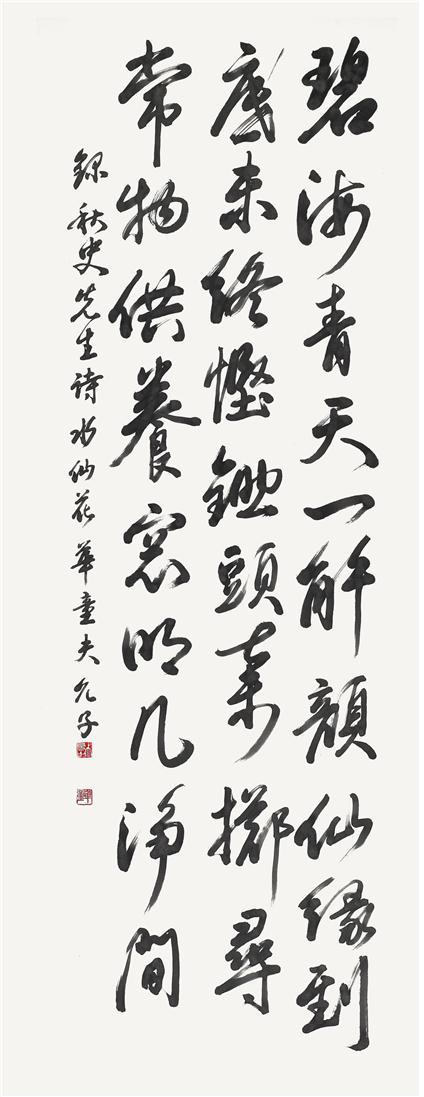 碧海青天一解顔仙緣到
底未終慳鋤頭棄擲尋
常物供養窓明几淨間
錄秋史先生詩水仙花 華童夫允子